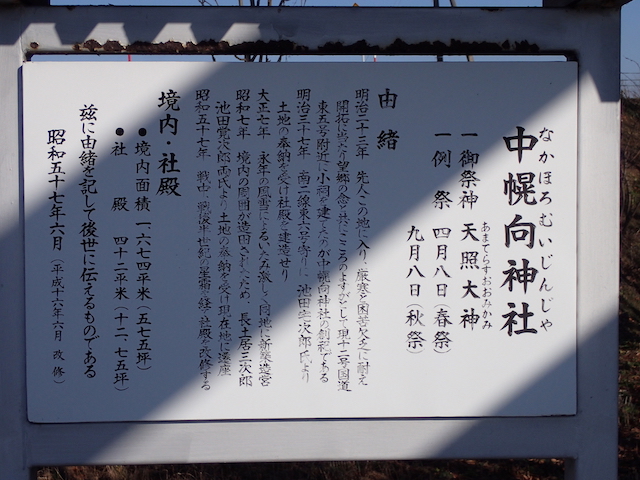 なかほろむいじんじゃ
中幌向神社
あまてらすおおみかみ
一御祭神 天照大神
一例 祭 四月八日(春祭)
九月八日(秋祭)
由緒
明治二十三年 先人この地に入り、厳寒と困苦欠乏に耐え
開拓に励み 望郷の念と共にこころのよすがとして 現十二号国道
東五号附近に小祠を建てたのが中幌向神社の創祀である
明治三十七年 南二線東六号寄りに 池田圭次郎氏より
土地の奉納を受け社殿を建造せり
大正七年 永年の風雪によるいたみ激しく同地に新築造営
昭和七年 境内の周囲が造田されたため、長土居三次郎
池田覚次郎両氏より土地の奉納を受け現在地に遷座
昭和五十七年 戦中 戦後半世紀の星霜を経た社殿を改修する
境内・社殿
●境内面積 一六七四平米(五七五坪)
●社 殿 四十二平米(十二、七五坪)
茲に由緒を記して後世に伝えるものである
昭和五十七年六月(平成十六年六月 改修)